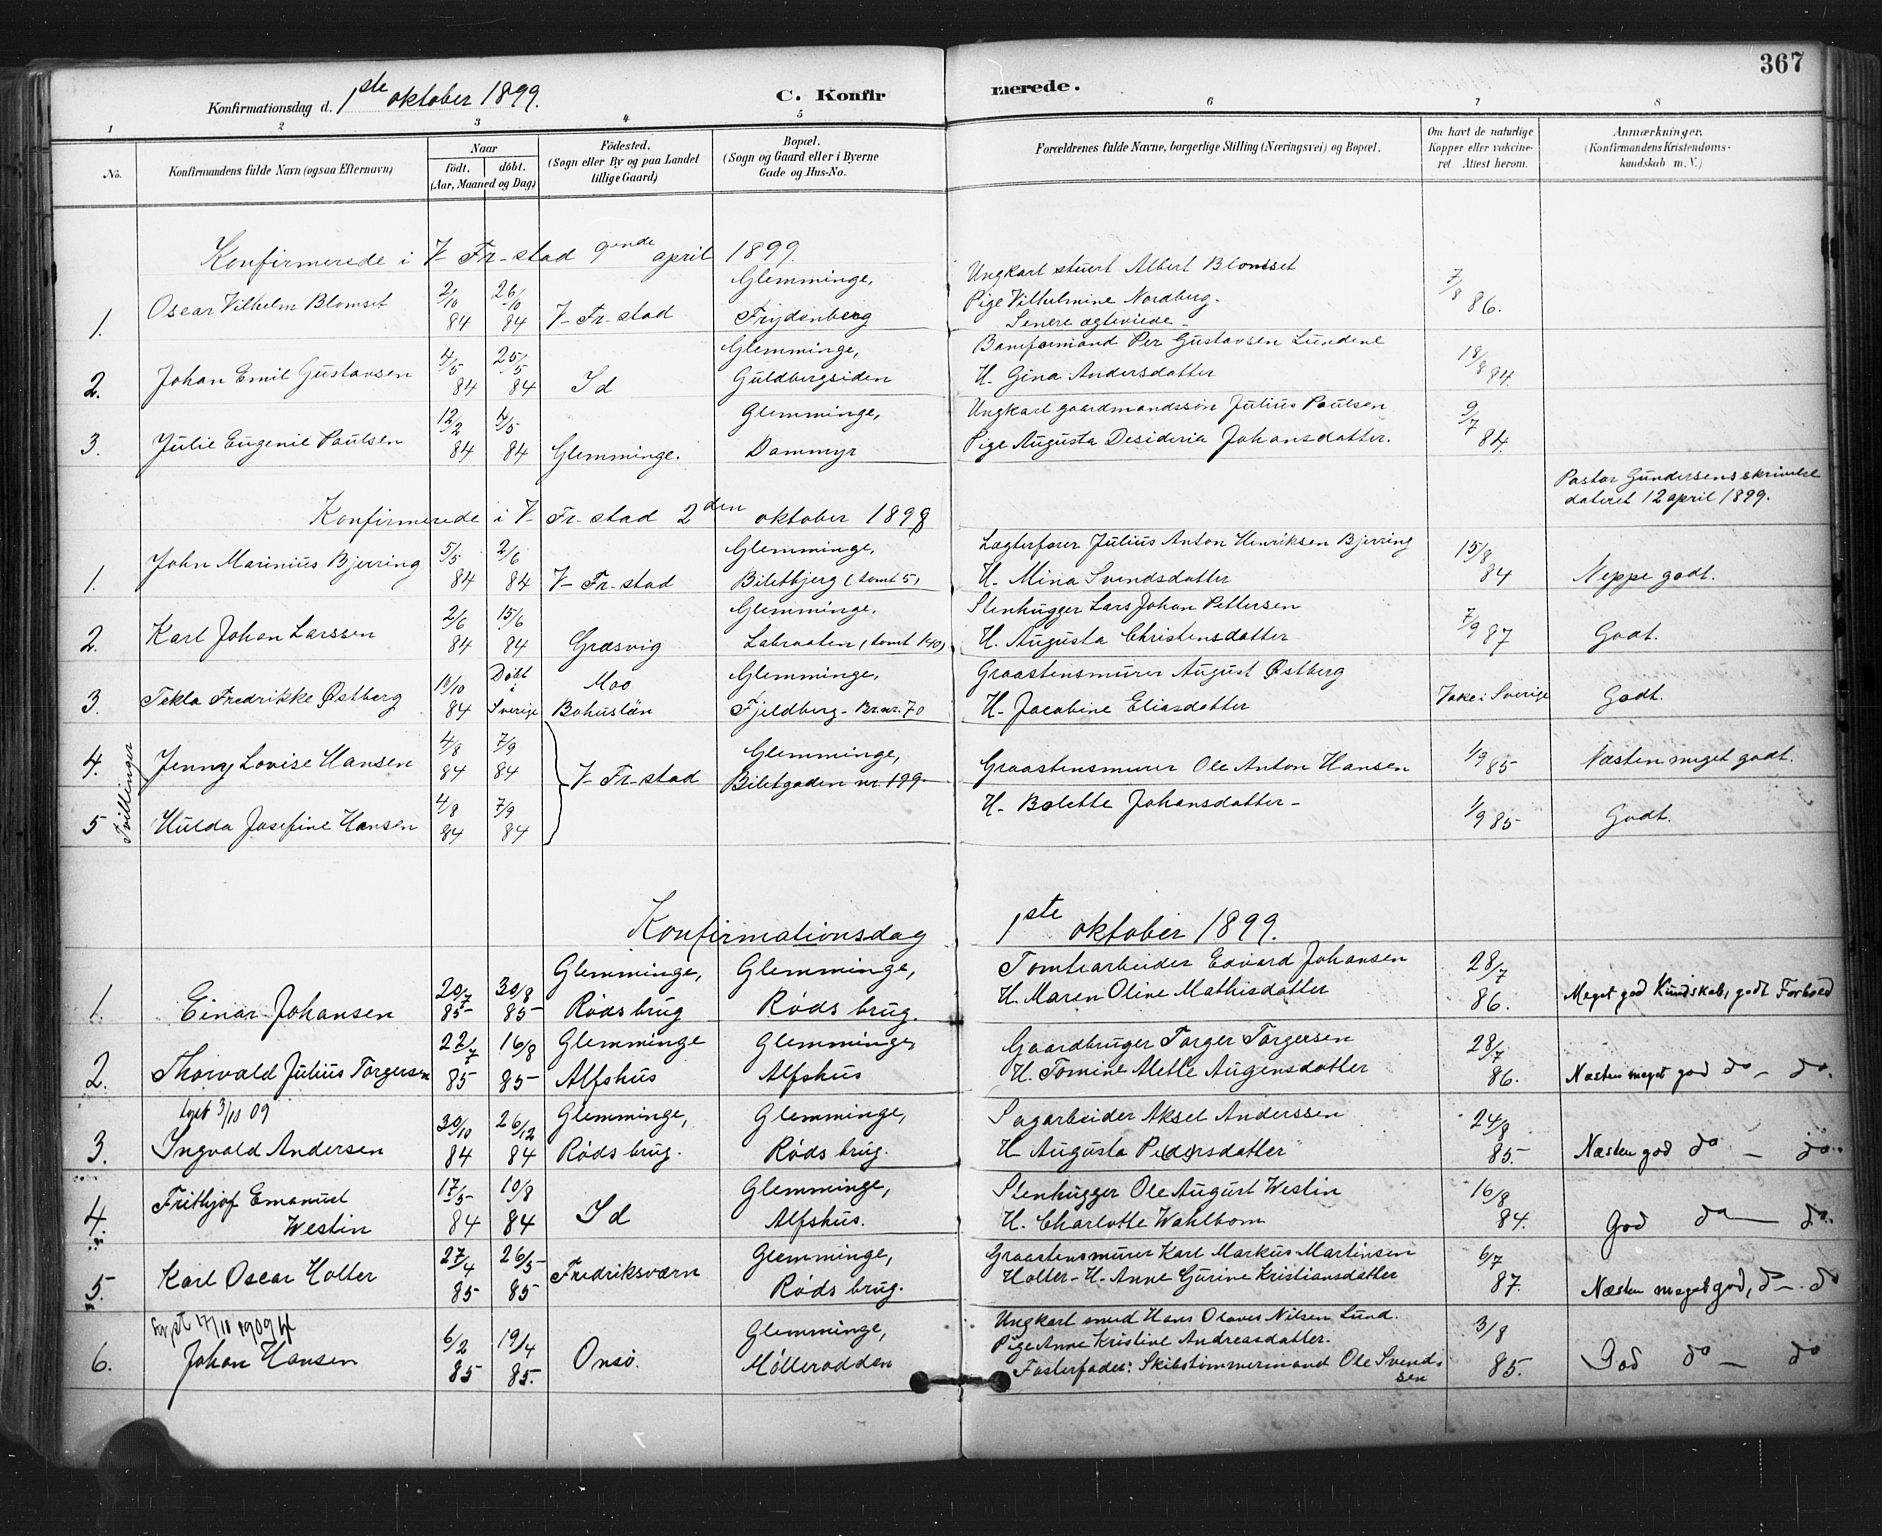 367
Konfirmationsdag d. 1ste oktober 1899.
C. Konfirmerede.
1 2 3 4 5 6 7 8
No.
Konfirmandens fulde Navn (ogsaa Efternavn)
Naar
født. døbt.
(Aar, Maaned og Dag)
Fødested.
(Sogn eller By og paa Landet
tillige Gaard)
Bopæl.
(Sogn og Gaard eller i Byerne
Gade og Hus-No.
Forældrenes fulde Navne, borgerlige Stilling (Næringsvei) og Bopæl.
Om havt de naturlige
Kopper eller vakcine-
ret Attest herom.
Anmærkninger.
(Konfirmandens Kristendoms-
kundskab m. V.)
Konfirmerede i V- Fr-stad 9ende april 1899.
1. Oscar Vilhelm Blomset 2/10 84 26/10 84 V- Fr-stad Glemminge, Frydenberg
Ungkarl stuert Albert Blomset 7/8 86.
Pige Vilhelmine Nordberg.
Senere ægteviede-
2. Johan Emil Gustavsen 4/5 84 25/5 84 Id Glemminge, Guldbergsiden
Baneformand Per Gustavsen Lundene 18/8 84
H. Gina Andersdatter
3. Julie Eugenie Paulsen 12/2 84 4/5 84 Glemminge. Glemminge, Dammyr
Ungkarl gaardmandssøn Julius Paulsen 9/7 84.
Pige Augusta Desideria Johansdatter.
Pastor Gundersens skrivelse
dateret 12 april 1899.
Konfirmerede i V- Fr-stad 2den oktober 1898
1. John Marinius Bjerring 5/5 84 2/6 84 V- Fr-stad Glemminge, Biletbjerg (tomt 5)
Lægterfører Julius Anton Henriksen Bjerring 15/8 84 Neppe godt.
H. Mina Svendsdatter
2. Karl Johan Larssen 2/6 84 15/6 84 Græsvig Glemminge, Labraaten (tomt 140)
Stenhugger Lars Johan Pettersen 7/9 87 Godt.
H. Augusta Christensdatter
3. Tekla Fredrikke Østberg 19/10 84 Døbt i Sverige Moo Bohuslän Glemminge, Fjeldberg- Br.nr. 70
Graastensmurer August Østberg Vakc i Sverige Godt.
H. Jacobine Eliasdatter
Tvillinger
4. Jenny Lovise Hansen 4/8 84 7/9 84 V- Fr-stad Glemminge, Biletgaden nr. 199.
Graastensmurer Ole Anton Hansen 1/9 85 Næsten meget godt.
5 Hulda Josefine Hansen 4/8 84 7/9 84
H. Bolette Johansdatter- 1/9 85 Godt.
Konfirmationsdag 1ste oktober 1899.
1. Einar Johansen 20/7 85 30/8 85 Glemminge, Røds brug Glemminge, Røds brug.
Tomtearbeider Edvard Johansen 28/7 86. Meget god Kundskab, godt Forhold
H. Maren Oline Mathisdatter
2. Thorvald Julius Torgersen 22/7 85 16/8 85 Glemminge Alfshus Glemminge, Alfshus
Gaardbruger Torger Torgersen 28/7 86. Næsten meget god do - do.
H. Tomine Alette Augensdatter
3. Ingvald Andersen 30/10 84 26/12 84 Glemminge, Røds brug. Glemminge, Røds brug.
3/10 09
Sagarbeider Aksel Anderssen 24/8 85. Næsten god do - do.
H Augusta Pedersdatter
4. Frithjof Emanuel Westin 17/5 84 10/8 84 Id Glemminge, Alfshus.
Stenhugger Ole August Westin 16/8 84. God do - do.
H. Charlotte Wahlbom
5. Karl Oscar Holter 27/4 85 26/5 85 Fredriksværn Glemminge, Røds brug.
Graastensmurer Karl Markus Martinsen 6/7 87. Næsten meget god, do - do
Holter- H. Anne Gurine Kristiansdatter
6. Johan Hansen 6/2 85 19/4 85. Onsø. Glemminge, Mølleradden
Ungkarl smed Hans Olaves Nilsen Lund. 3/8 85. God do - do
Pige Anne Kristine Andreasdatter.
Fosterfader: Skibstømmermand Ole Svend-
sen